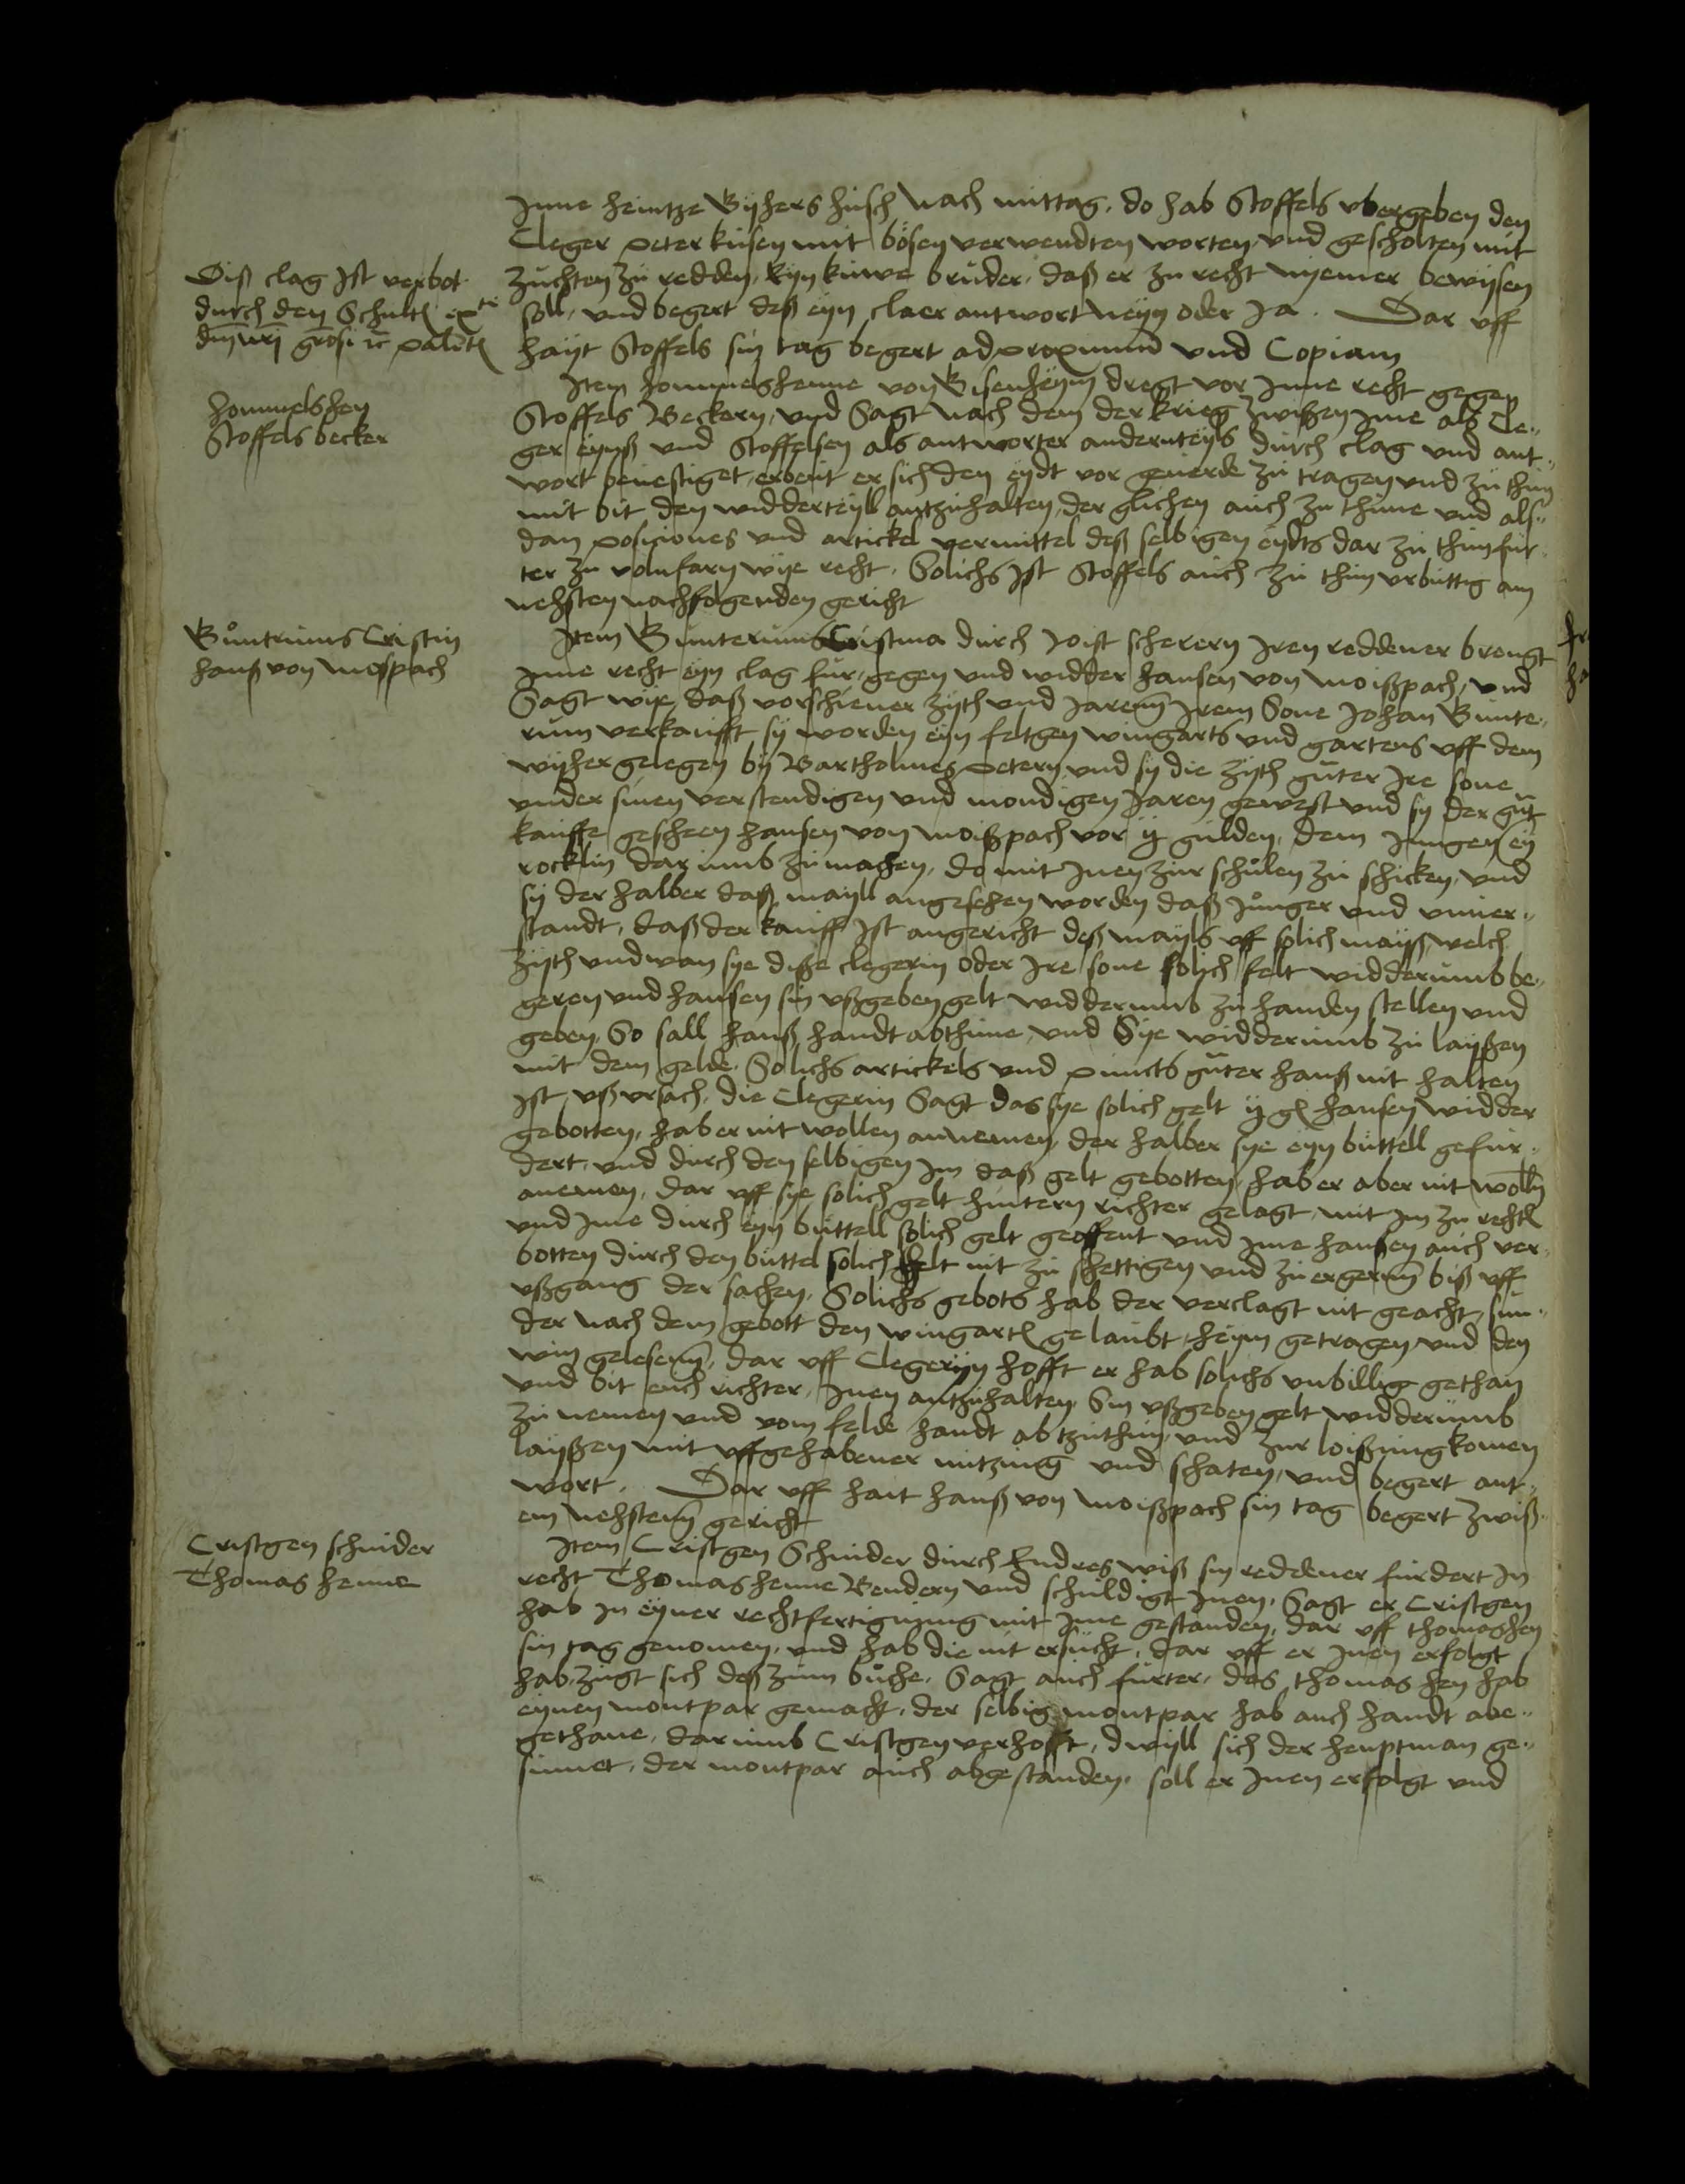 Inne heintze Byhers husch nach mittag. do hab Stoffels vbergeben den
Cleger peter kusen mit bösen verwendten worten, vnd gescholten mit
zuchten zu redden, kyn kuwe bruder. daß er zu recht nyemer bewysen
soll, vnd begert deß eyn claer antwort neyn oder Ja. Dar vff
hayt Stoffels sin tag begert ad proximum vnd Copiam
Diß clag Ist verbot
durch den Schulth ex
dm nri grosi palat
Item hommelshenne von Bisenheym dregt vor Inne recht gegen
Stoffels Beckern, vnd Sagt nach dem der krieg zwißen Ime als Cle„
ger eynß vnd Stoffelsen als antworter andernteyls durch clag vnd ant„
wort beuestiget, erbeut er sich den eydt vor geuerde zu tragen vnd zu thun
mit bit den widderteyll antzuhalten, der glichen auch zu thune vnd als„
dan posiciones vnd artickel vermittel deß selbigen eydts dar zu thun fur„
ter zu volnfarn wye recht. Solichs Ist Stoffels auch zu thun vrbuttig am
nehsten nachfolgenden gericht
hommelshen
Stoffels becker
Item Bunterums Cristina durch Joist scherern Iren reddener brengt
Inne recht eyn clag fur, gegen vnd widder hansen von Moißpach, vnd
Sagt wye, daß vorschiener zyth vnd Jarenn Irem Sone Johan Bunte„
rum verkaufft sy worden eyn feltgen wingarts vnd gartens vff dem
wyher gelegen by Bartholmes petern, vnd sy die zyth guter Ire sone
vnder sinen verstendigen vnd mondigen Jaren gewest vnd sy der gut
kauffe gescheen hansen von Moißpach vor ij gulden, dem Jungen ey
rocklin dar vmb zu machen, do mit Inen zur schulen zu schicken, vnd
sy der halber daß mayll angesehen worden daß Junger vnd vnuer„
standt, daß der kauff Ist angericht deß mayls vff solich mayß, welch
zyth vnd wan sye diße clegerin oder Ire sone solich felt widderumb be„
geren vnd hansen sin vßgeben gelt widderumb zu handen stellen vnd
geben, So sall hanß handt abthune, vnd Sye widderumb zu laysßen
mit dem gelde. Solichs artickels vnd puncts guter hanß nit halten
Ist, vß vrsach, die Clegerin Sagt das sye solich gelt ij gl hansen widder
gebotten, hab er nit wollen annemen, der halber sye eyn buttell gefur„
dert, vnd durch den selbigen Im daß gelt gebotten, hab er aber nit wolln
anemen, dar vff sye solich gelt hintern richter gelagt, mit Im zu recht
vnd Ime durch eyn buttell solich gelt geoffent vnd Ime hansen auch ver„
botten durch den buttel solich felt nit zu schettigen vnd zu ergernn biß vff
vßgang der sachen. Solichs gebots hab der verclagt nit geacht, sun„
der nach dem gebott den wingart gelaubt, heym getragen vnd den
win gelesenn, dar vff Clegeryn hofft er hab solichs vnbillig gethan
vnd bit euch richter, Inen antzuhalten, Sin vßgeben gelt widderumb
zu nemen vnd vom felde handt abtzuthun, vnd zur loißung komen
laysßen mit vffgehabener nutzung vnd schaten, vnd begert ant„
wort. Dar vff hait hanß von Moißpach sin tag begert zwiß„
em nehstenn gericht
Buntrums Cristin
hanß von Mospach
Item Cristgen Schnider durch Endres wiß sin reddener furdert In
recht Thomas henne Bendern vnd schuldigt Inen, Sagt er Cristgen
hab In eyner rechtfertigunng mit Ime gestanden, dar vff thomashen
sin tag genomen, vnd hab die nit ersucht, dar vff er Inen erfolgt
hab, zugt sich deß zum buche. Sagt auch furter, das thomas hen hab
eynen montpar gemacht, der selbig montpar hab auch handt abe„
gethane, dar vmb Cristgen verhofft, dwyll sich der heuptman ge„
sumet, der montpar auch abgestanden, soll er Inen erfolgt vnd
Cristgen schnider
Thomas henne